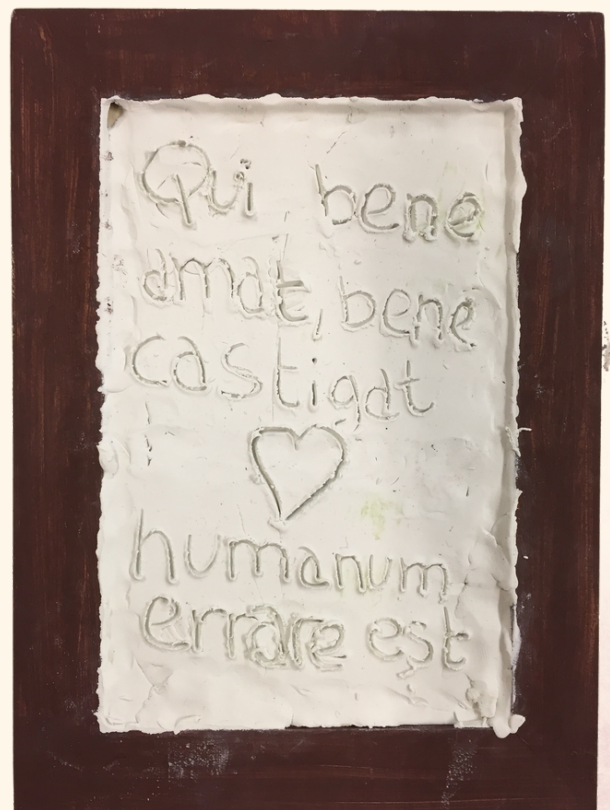 Qui bene
amat, bene
castigat
humanum
errare est